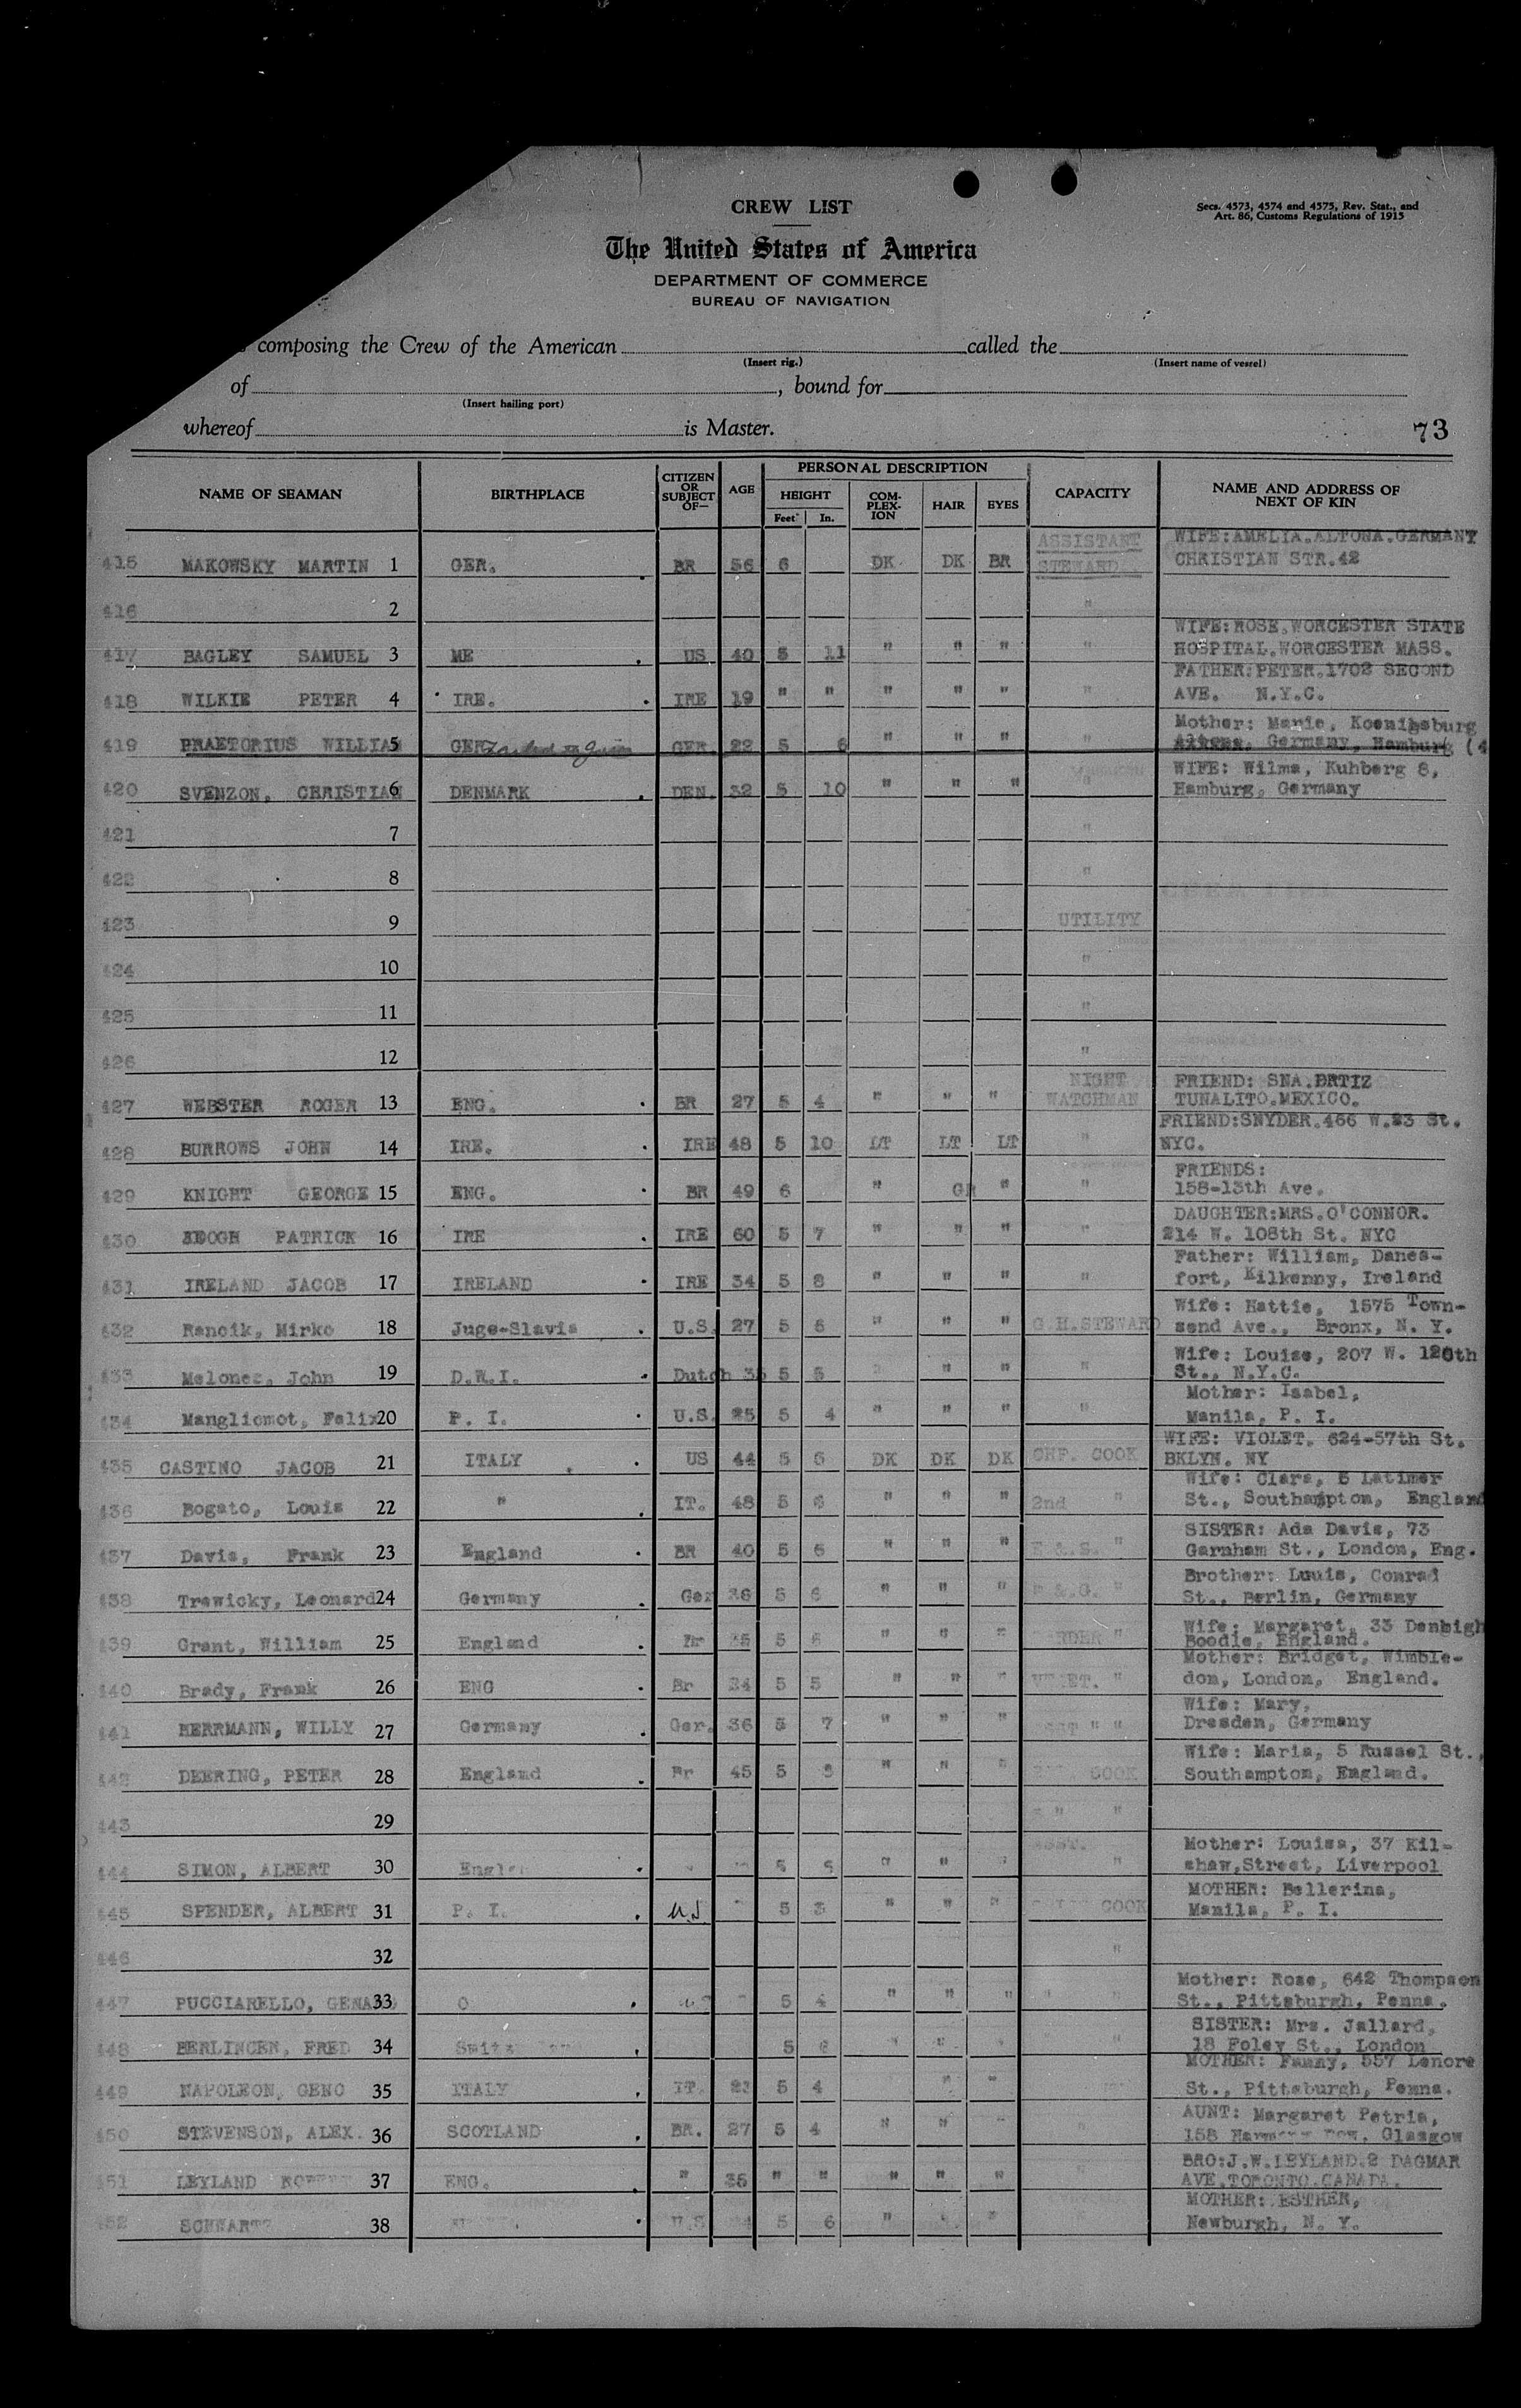 CREW LIST
Secs. 4573, 4574 and 4575, Rev. Stat., and
Art. 86, Customs Regulations of 1915
The United States of America
DEPARTMENT OF COMMERCE
BUREAU OF NAVIGATION
composing the Crew of the American called the
(Insert rig.) (Insert name of vessel)
of , bound for
(Insert hailing port)
whereof is Master.
73
NAME OF SEAMAN BIRTHPLACE CITIZEN OR SUBJECT OF— AGE PERSONAL DESCRIPTION HEIGHT Feet In. COM-PLEX-ION HAIR EYES CAPACITY NAME AND ADDRESS OF NEXT OF KIN
415 MAKOWSKY MARTIN 1 GER. BR 56 6 DK DK BR ASSISTANT STEWARD. WIFE:AMELIA.ALTONA.GERMANY
CHRISTIAN STR.42
416 2 "
417 BAGLEY SAMUEL 3 ME . US 40 5 11 " " " " WIFE:ROSE.WORCESTER STATE
HOSPITAL.WORCESTER MASS.
418 WILKIE PETER 4 IRE. . IRE 19 " " " " " " FATHER:PETER.1702 SECOND
AVE. N.Y.C.
419 PRAETORIUS WILLIAM 5 GER. GER. 22 5 6 " " " " Mother: Marie, Koenigsburg
Altona, Germany, Hamburg (4
420 SVENZON, CHRISTIAN 6 DENMARK . DEN. 32 5 10 " " " " WIFE: Wilma, Kuhberg 8,
Hamburg, Germany
421 7 "
422 8 "
423 9 UTILITY
424 10 "
425 11 "
426 12 "
427 WEBSTER ROGER 13 ENG. . BR 27 5 4 " " " NIGHT WATCHMAN FRIEND: SNA.ORTIZ
TUNALITO.MEXICO.
428 BURROWS JOHN 14 IRE. . IRE 48 5 10 LT LT LT " FRIEND:SNYDER.466 W.23 St.
NYC.
429 KNIGHT GEORGE 15 ENG. . BR 49 6 " GR " " FRIENDS:
158-13th Ave.
430 KEOGH PATRICK 16 IRE . IRE 60 5 7 " " " " DAUGHTER:MRS.O'CONNOR.
214 W. 108th St. NYC
431 IRELAND JACOB 17 IRELAND . IRE 34 5 8 " " " " Father: William, Danes-
fort, Kilkenny, Ireland
432 Rancik, Mirko 18 Jugo-Slavia . U.S. 27 5 6 " " " G.H.STEWARD Wife: Hattie, 1575 Town-
send Ave., Bronx, N. Y.
433 Melones, John 19 D.W.I. . Dutch 35 5 5 " " " Wife: Louise, 207 W. 120th
St., N.Y.C.
434 Mangliomot, Felix 20 P. I. . U.S. 25 5 4 " " " " Mother: Isabel,
Manila, P. I.
435 CASTINO JACOB 21 ITALY . US 44 5 5 DK DK DK CHF. COOK WIFE: VIOLET. 624-57th St.
BKLYN. NY
436 Bogato, Louis 22 " . IT. 48 5 6 " " " 2nd " Wife: Clara, 5 Latimer
St., Southampton, England
437 Davis, Frank 23 England . BR 40 5 6 " " " " SISTER: Ada Davis, 73
Garnham St., London, Eng.
438 Trawicky, Leonard 24 Germany . Ger 36 5 6 " " " " Brother: Louis, Conrad
St., Berlin, Germany
439 Grant, William 25 England . Br 35 5 6 " " " " Wife: Margaret, 33 Denbigh
Boodle, England.
440 Brady, Frank 26 ENG . Br 34 5 5 " " " " Mother: Bridget, Wimble-
don, London, England.
441 HERRMANN, WILLY 27 Germany . Ger. 36 5 7 " " " " " Wife: Mary,
Dresden, Germany
442 DEERING, PETER 28 England . Br 45 5 8 " " " COOK Wife: Maria, 5 Russel St.,
Southampton, England.
443 29 " "
444 SIMON, ALBERT 30 . 5 5 " " " " Mother: Louisa, 37 Kil-
shaw,Street, Liverpool
445 SPENDER, ALBERT 31 P. I. . U.S 5 3 " " " COOK MOTHER: Bellerina,
Manila, P. I.
446 32 "
447 PUCCIARELLO, 33 . 5 4 " " " " " Mother: Rose, 642 Thompson
St., Pittsburgh, Penna.
448 BERLINCEN, FRED 34 . 5 6 " " " " SISTER: Mrs. Jallard,
18 Foley St., London
449 NAPOLEON, GENO 35 ITALY . IT. 23 5 4 " " MOTHER: Fanny, 557 Lenore
St., Pittsburgh, Penna.
450 STEVENSON, ALEX. 36 SCOTLAND . BR. 27 5 4 " " " " AUNT: Margaret Petrie,
158 Row, Glasgow
451 LEYLAND 37 ENG. . " 35 " " " " " " BRO:J.W.LEYLAND.2 DAGMAR
AVE.TORONTO.CANADA.
452 SCHWARTZ 38 . U.S 5 6 " " " MOTHER: ESTHER,
Newburgh, N. Y.